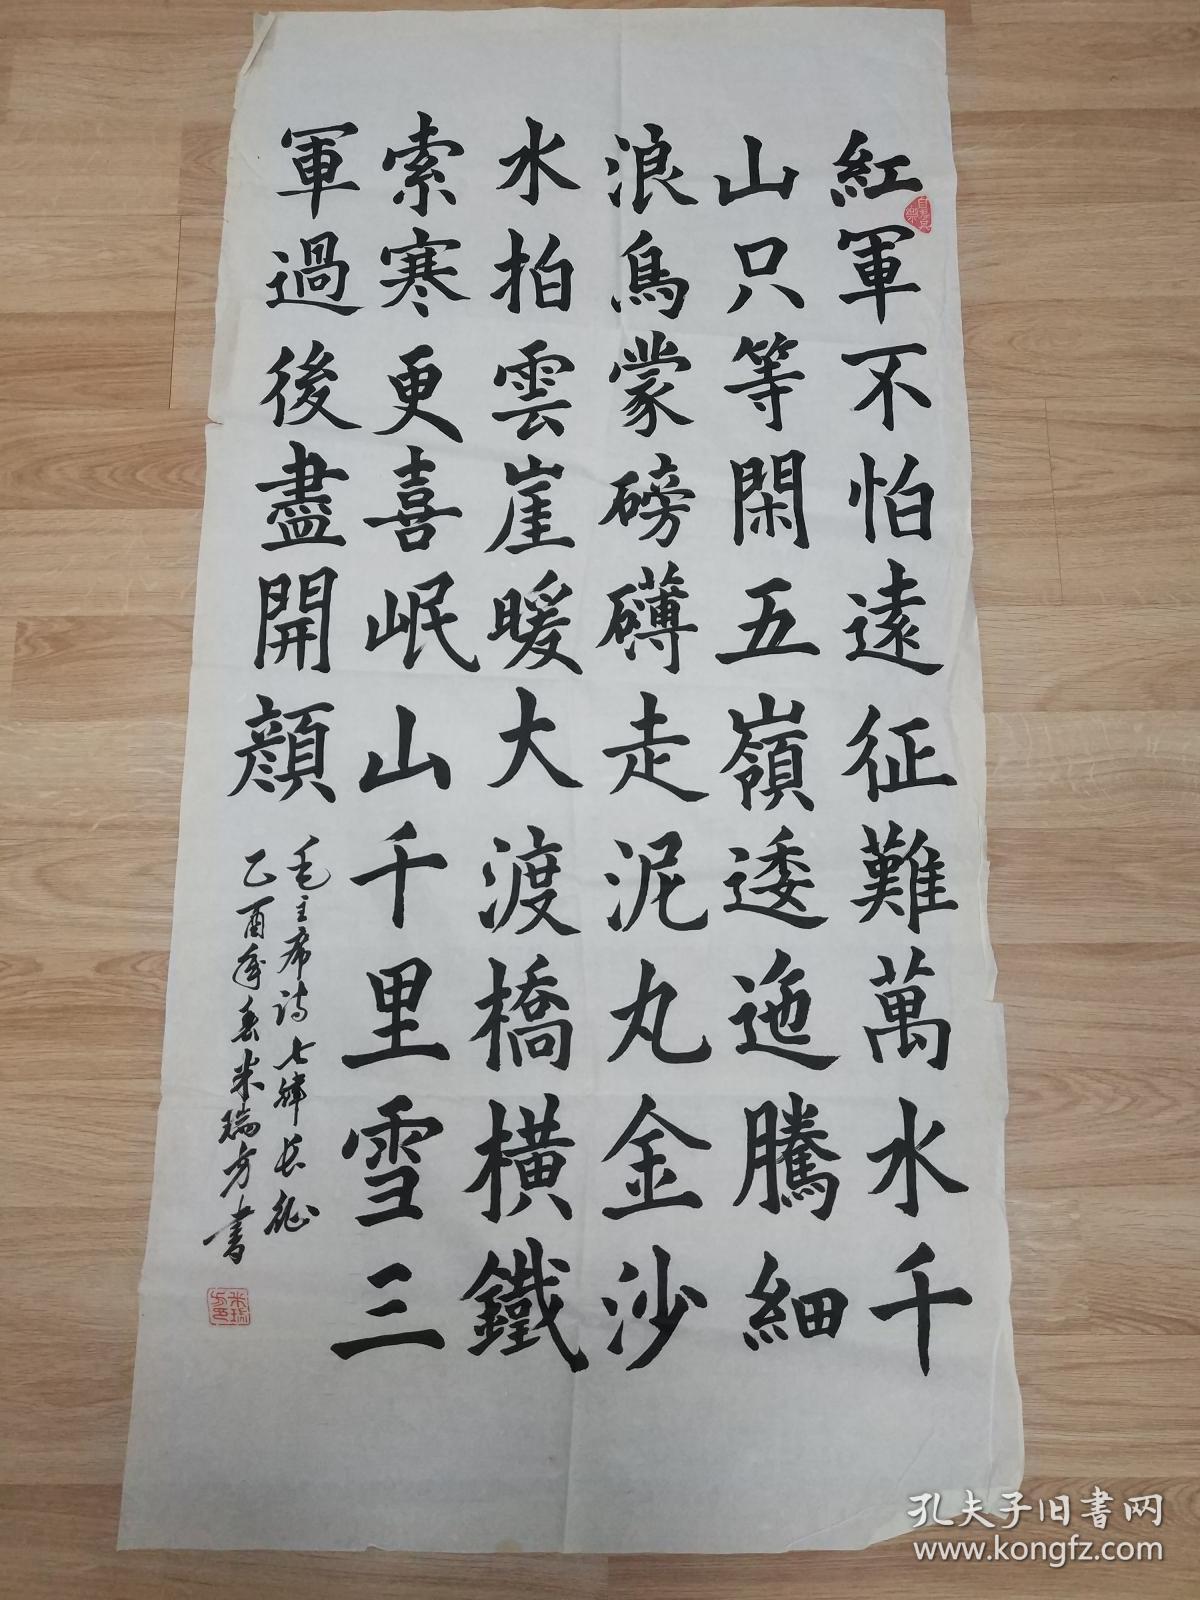 紅軍不怕遠征難萬水千
山只等閑五嶺逶迤騰細
浪烏蒙磅礴走泥丸金沙
水拍雲崖暖大渡橋橫鐵
索寒更喜岷山千里雪三
軍過後盡開顏
毛主席詩七律长征
乙酉年春米瑞方書
孔夫子旧书网
www.kongfz.com